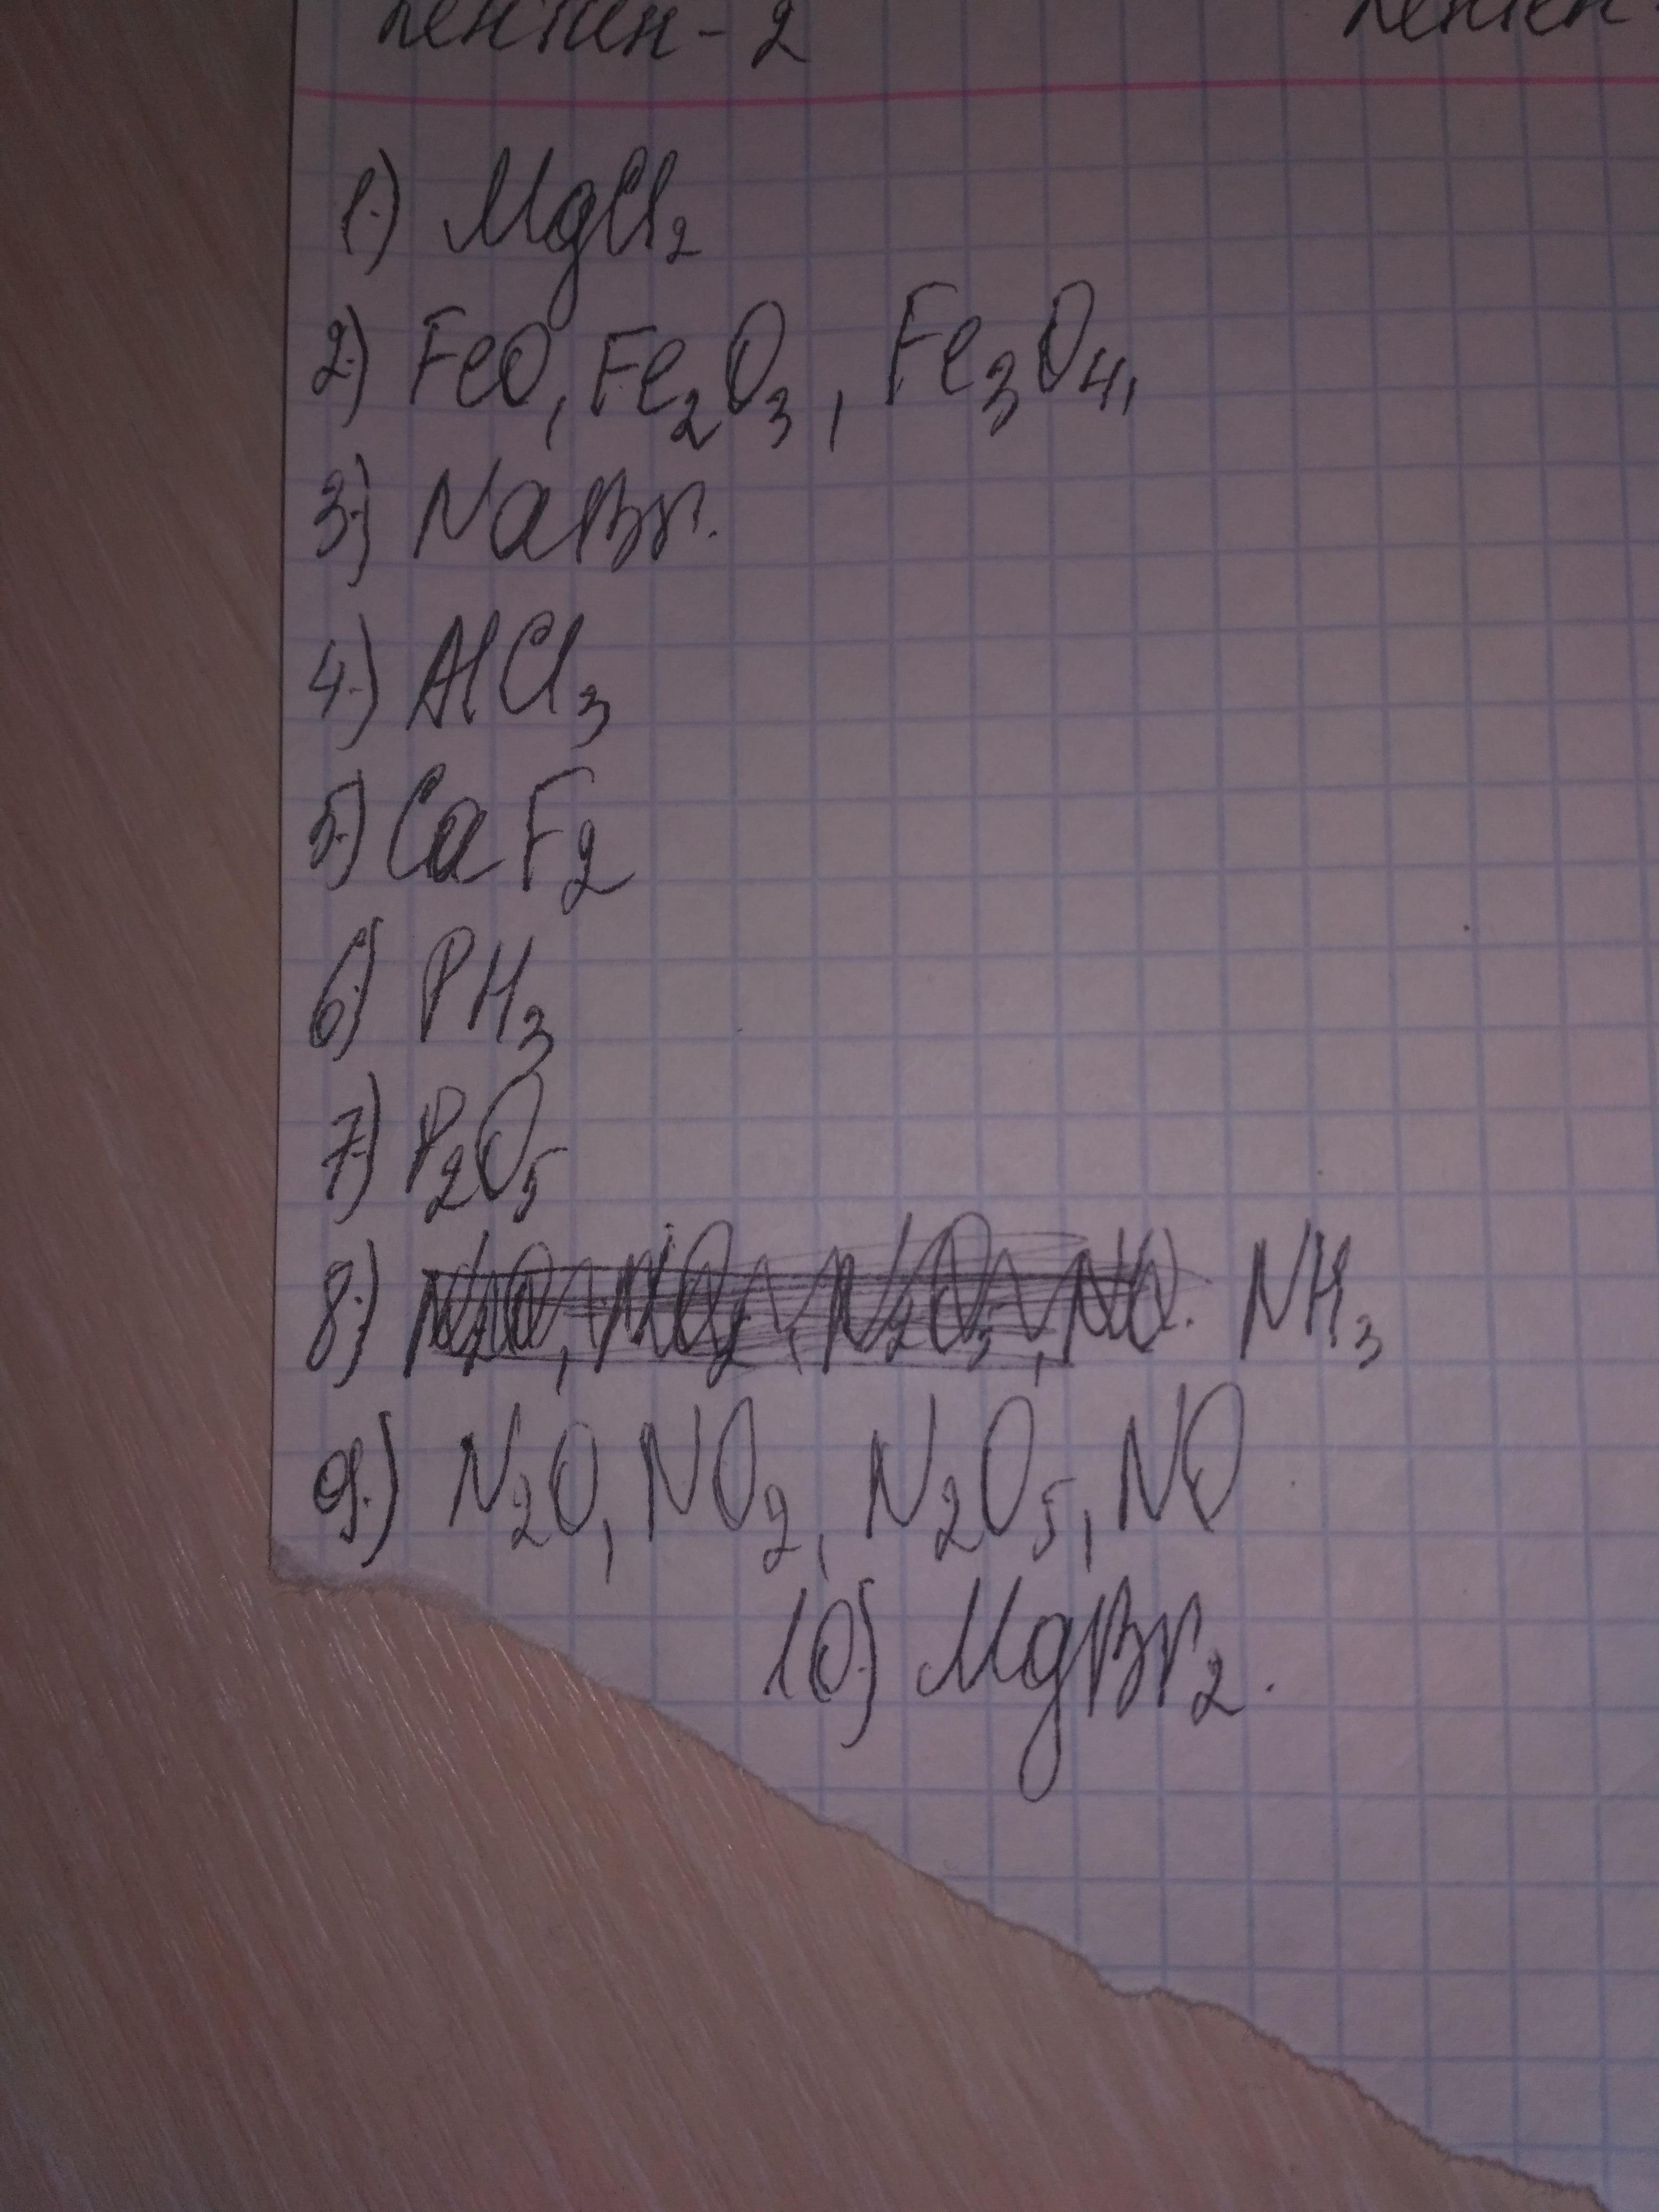 пентен-2 пентен
1) MgCl₂
2) FeO, Fe₂O₃, Fe₃O₄,
3) NaBr.
4) AlCl₃
5) CaF₂
6) PH₃
7) P₂O₅
8) NH₃
9.) N₂O, NO₂, N₂O₅, NO
10) MgBr₂.